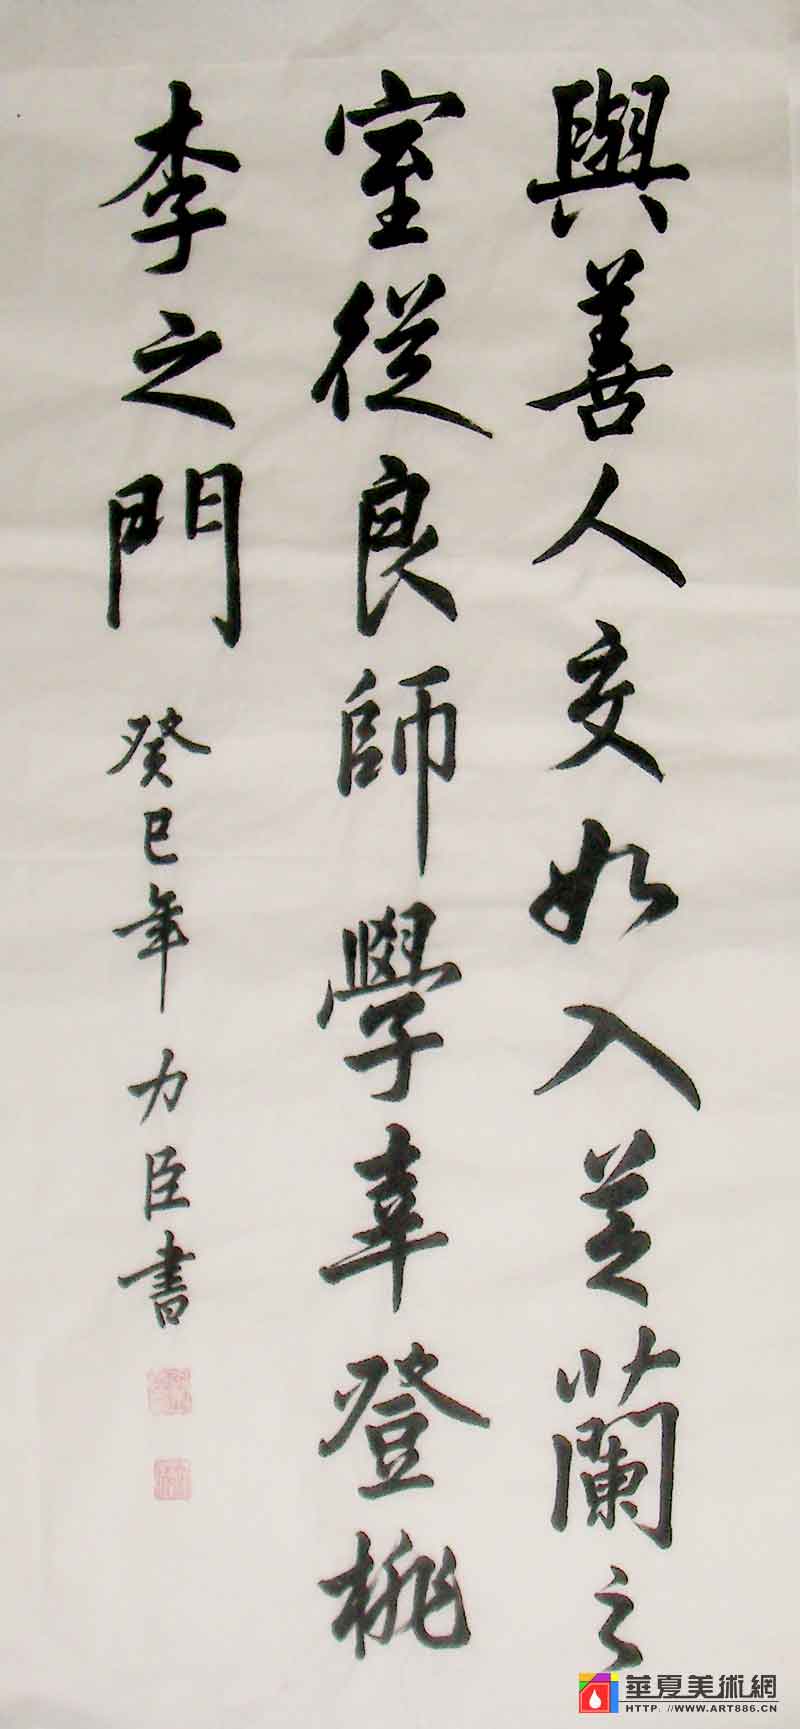 與善人交如入芝蘭之
室從良師學幸登桃
李之門
癸巳年 力臣書
華夏美術網
HTTP://WWW.ART886.CN